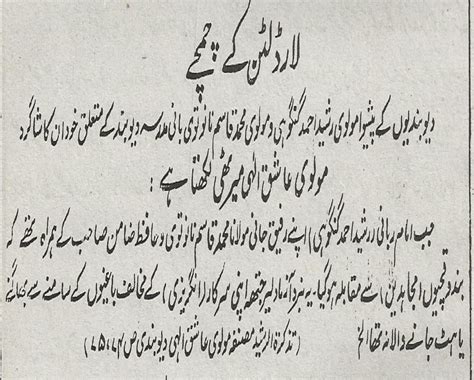 لارڈ لٹن کے چمچے
دیوبندیوں کے پیشوا مولوی رشید احمد گنگوہی و مولوی محمد قاسم نانوتوی بانی مدرسہ دیوبند کے متعلق خود ان کا شاگرد
مولوی عاشق الٰہی میرٹھی لکھتا ہے :
جب امام ربانی (رشید احمد گنگوہی) اپنے رفیق جانی مولانا محمد قاسم نانوتوی و حافظ ضامن صاحب کے ہمراہ تھے کہ
بندوقچیوں (مجاہدین) سے مقابلہ ہوگیا۔ یہ نبرد آزما دلیر جتھہ اپنی سرکار (انگریزی) کے مخالف باغیوں کے سامنے سے بھاگنے
یا ہٹ جانے والا نہ تھا الخ (تذکرۃ الرشید مصنفہ مولوی عاشق الٰہی دیوبندی ص ۷۴، ۷۵)